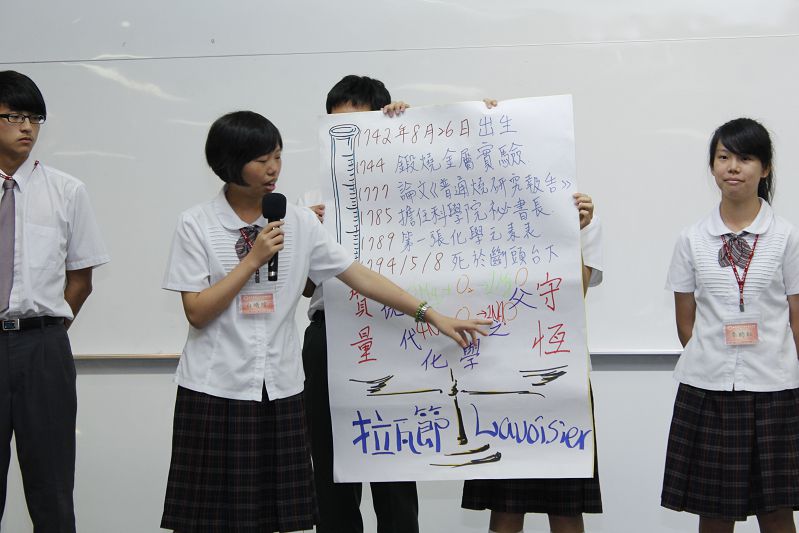 1742年8月26日出生
1744 鍛燒金屬實驗
1777 論文《普通燒研究報告》
1785 擔任科學院祕書長
1789 第一張化學元素表
1794/5/8 死於斷頭台下
質量
守恆
現代化學之父
拉瓦節
Lavoisier